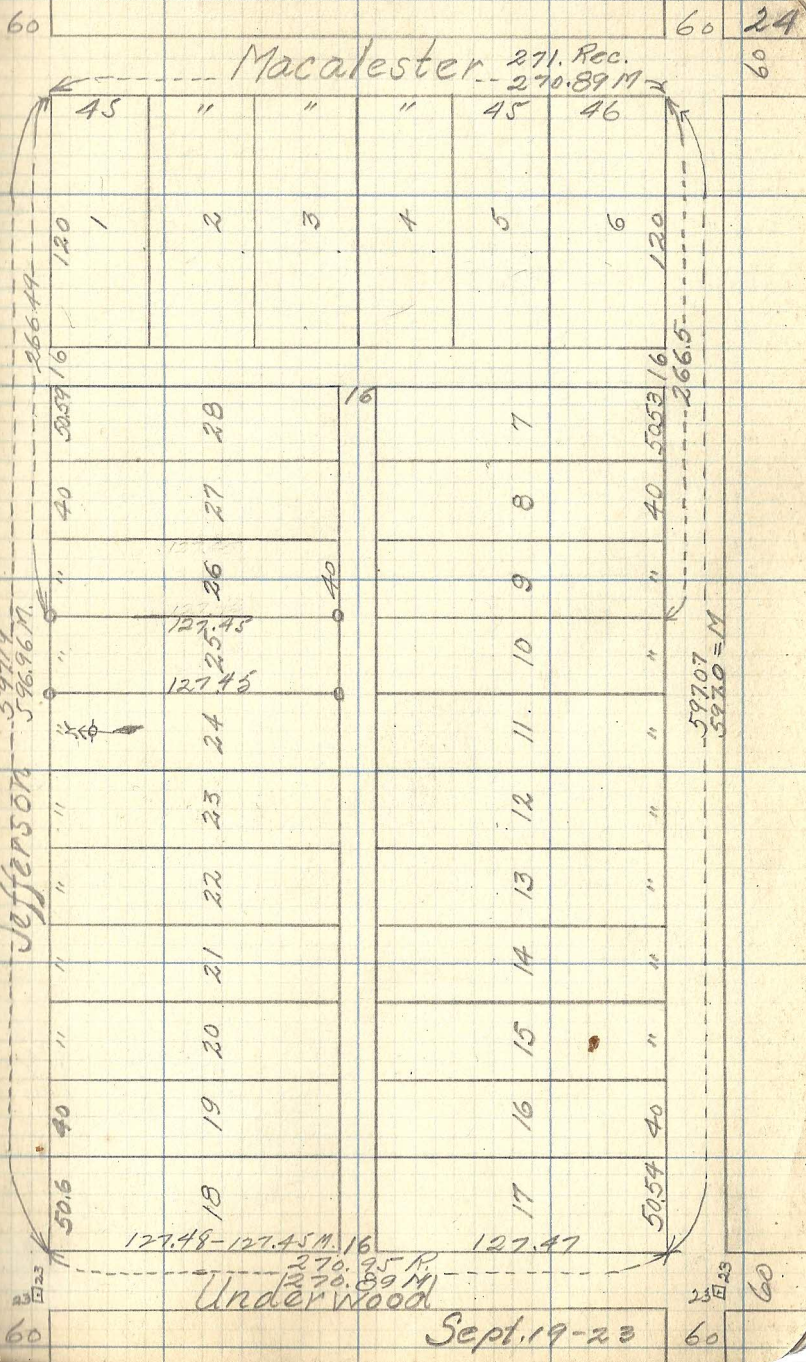 60 60 24
60
Macalester 271. Rec.
270.89 M
45 " " " 45 46
1 2 3 4 5 6
120 120
266.49 266.5
16 16
16
50.54 28 7 50.53
40 27 8 40
" 26 40 9 "
127.45
" 25 10 "
127.45
" 24 11. "
" 23 12 "
" 22 13 "
" 21 14 "
" 20 15 "
40 19 16 40
50.6 18 17 50.54
597.07
597.0 = M
596.96 M.
Jefferson
127.48-127.45 M. 16 127.47
270.95 R.
270.89 M
Underwood
23 23 23 23 60
60 Sept. 19-23 60